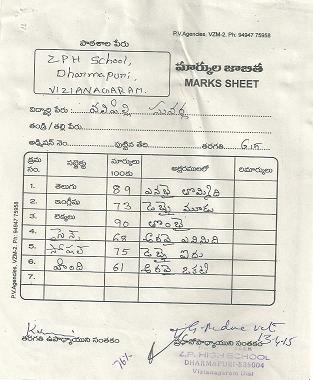 P.V.Agencies, VZM-2. Ph: 94947 75958
పాఠశాల పేరు
Z.P.H School,
Dharmapuri,
VIZIANAGARAM.
మార్కుల జాబితా
MARKS SHEET
విద్యార్థి పేరు :
తండ్రి / తల్లి పేరు :
అడ్మిషన్ నెం. పుట్టిన తేది. తరగతి 6th
క్రమ సం. సబ్జెక్టు మార్కులు 100కు అక్షరములలో రిమార్కులు
1. తెలుగు 89 ఎనభై తొమ్మిది
2. ఇంగ్లీషు 73 డెబ్బై మూడు
3. లెక్కలు 90 తొంభై
4. సైన్స్ 68 అరవై ఎనిమిది
5. సోషల్ 75 డెబ్బై ఐదు
6. హింది 61 అరవై ఒకటి
7.
P.V.Agencies, VZM-2. Ph: 94947 75958
తరగతి ఉపాధ్యాయుని సంతకం
ప్రధానోపాధ్యాయుని సంతకం
76%
Z.P. HIGH SCHOOL
DHARMAPURI-535004
Vizianagaram Dist